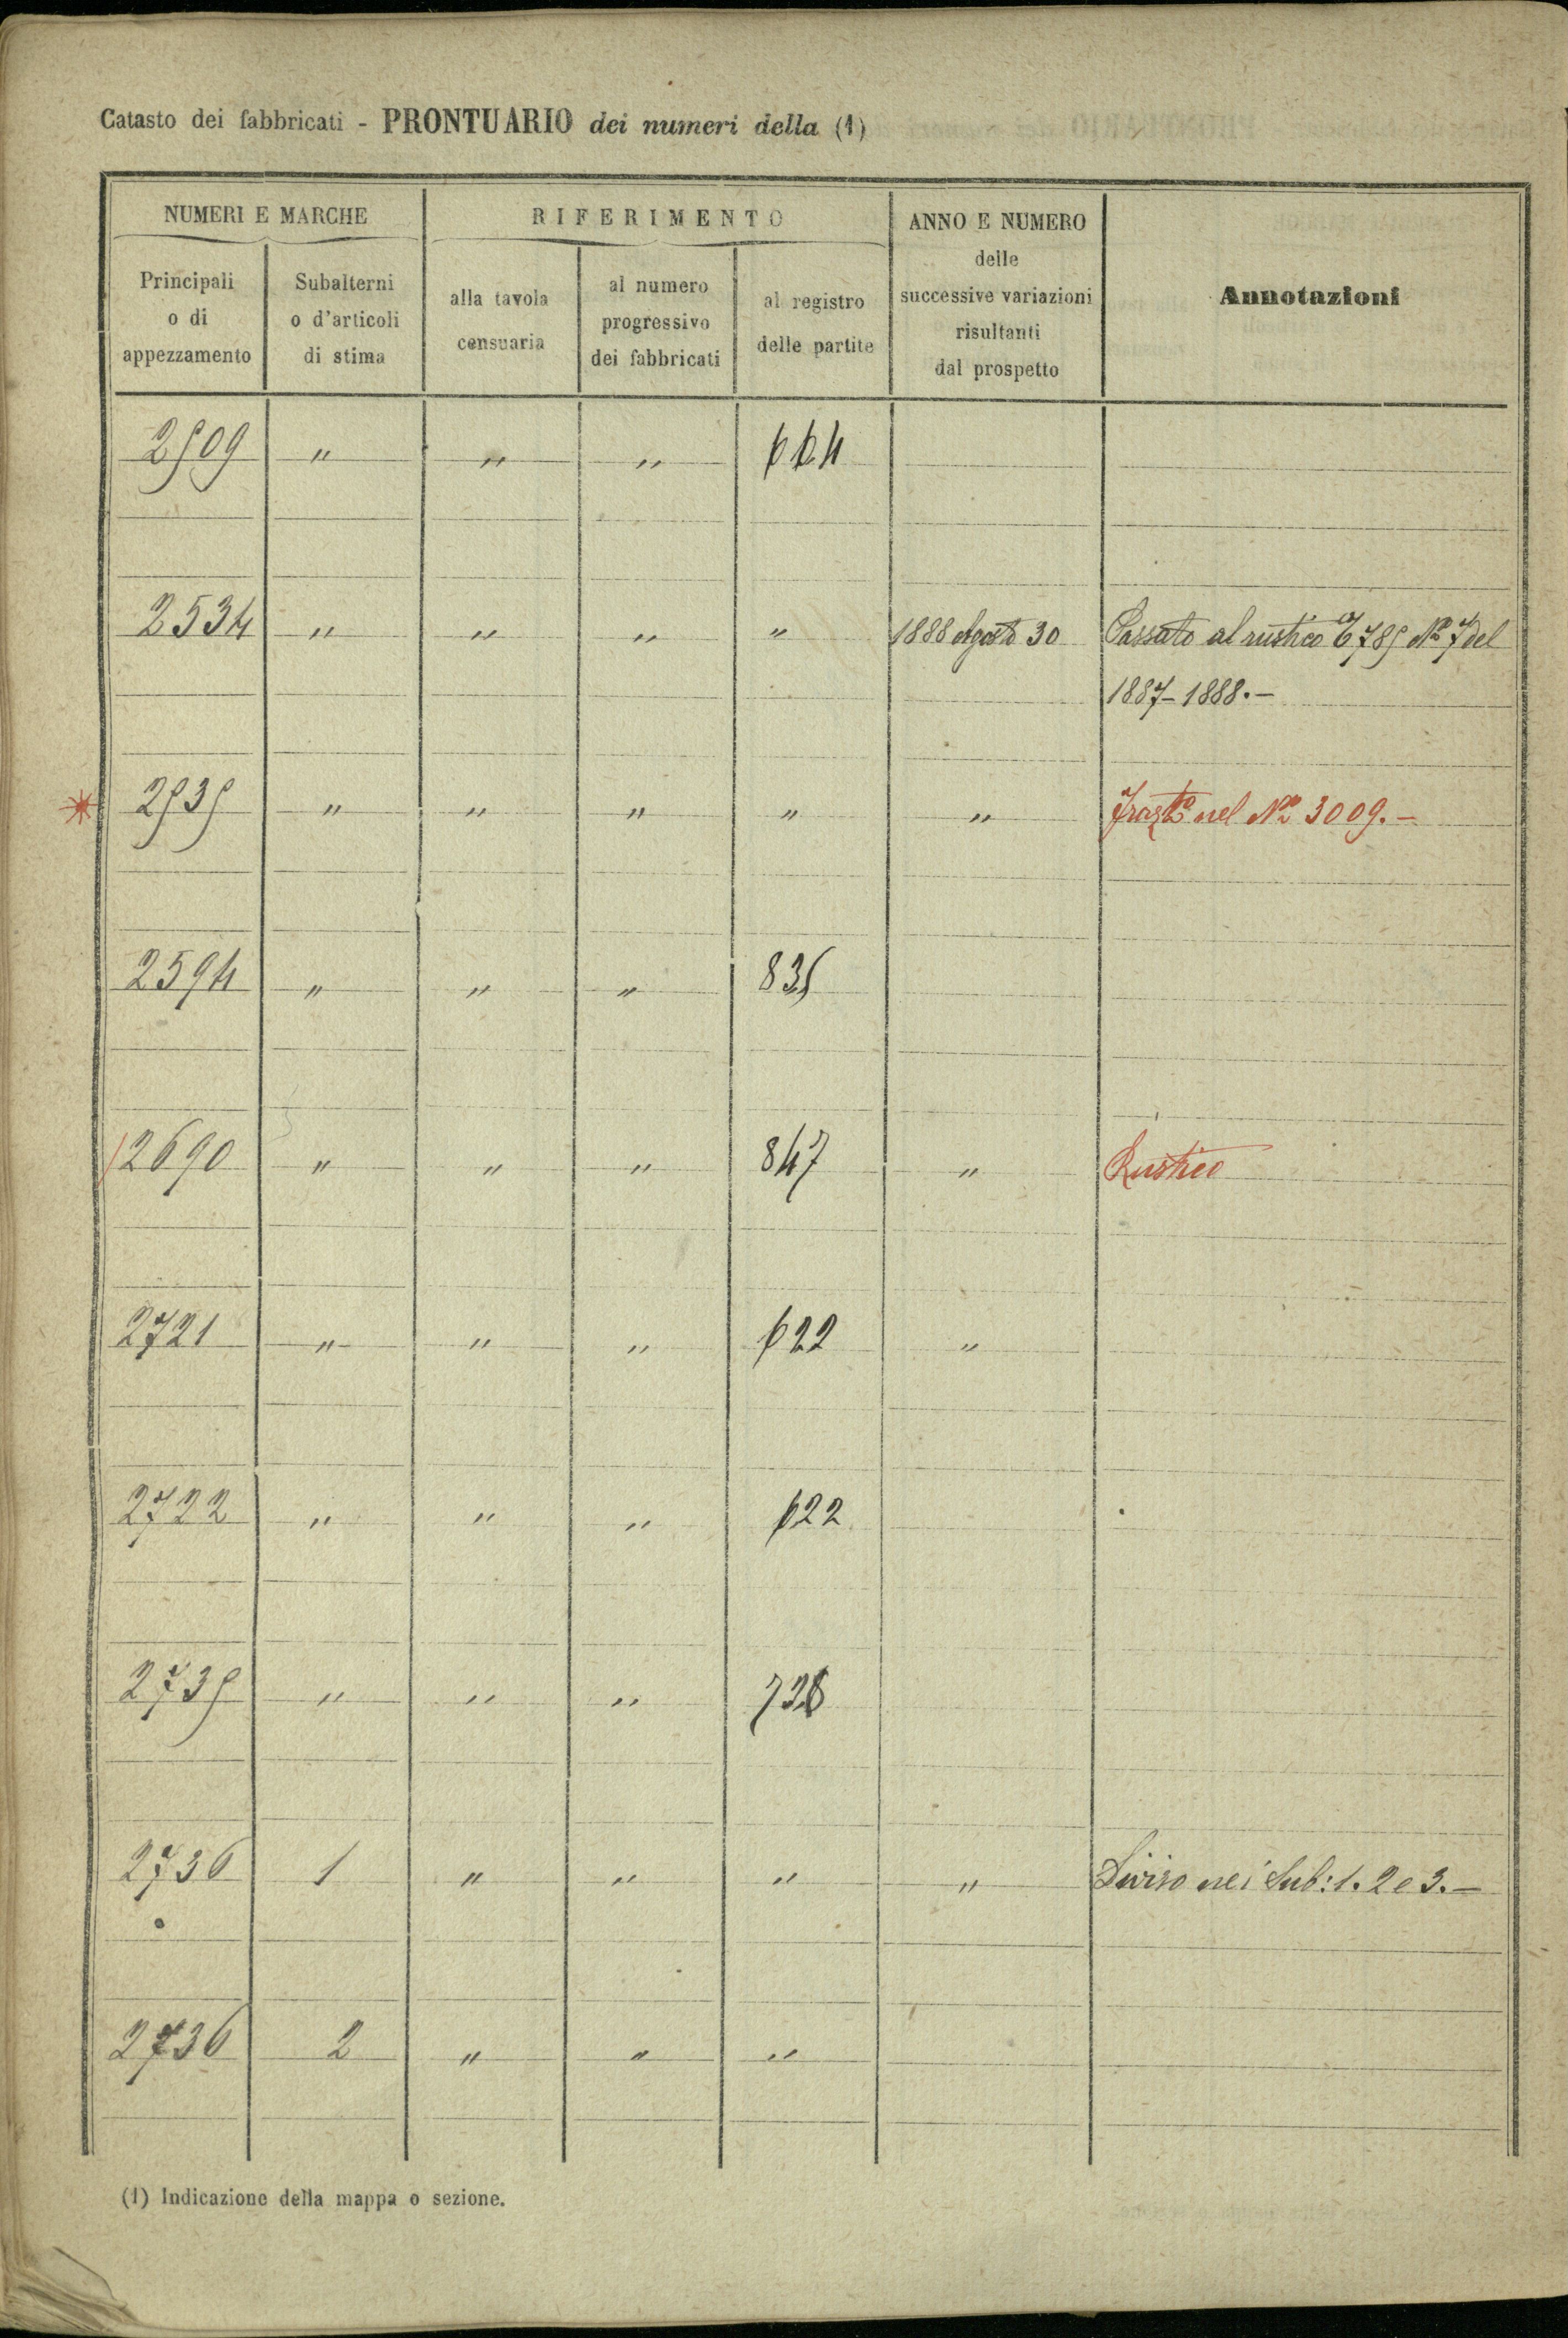 Catasto dei fabbricati - PRONTUARIO dei numeri della (1)
NUMERI E MARCHE
RIFERIMENTO
ANNO E NUMERO
delle
successive variazioni
risultanti
dal prospetto
Annotazioni
Principali
o di
appezzamento
Subalterni
o d'articoli
di stima
alla tavola
censuaria
al numero
progressivo
dei fabbricati
al registro
delle partite
2509 " " " 664
2534 " " " " 1888 Agosto 30 Passato al rustico T 785 No 7 del
1887-1888.-
2535 " " " " " nel No 3009.-
2594 " " " 835
2690 " " " 847 " Rustico
2721 " " " 622 "
2722 " " " 622
2735 " " "
2736 1 " " " " Diviso nei Sub: 1. 2 e 3.-
2736 2 " " "
(1) Indicazione della mappa o sezione.